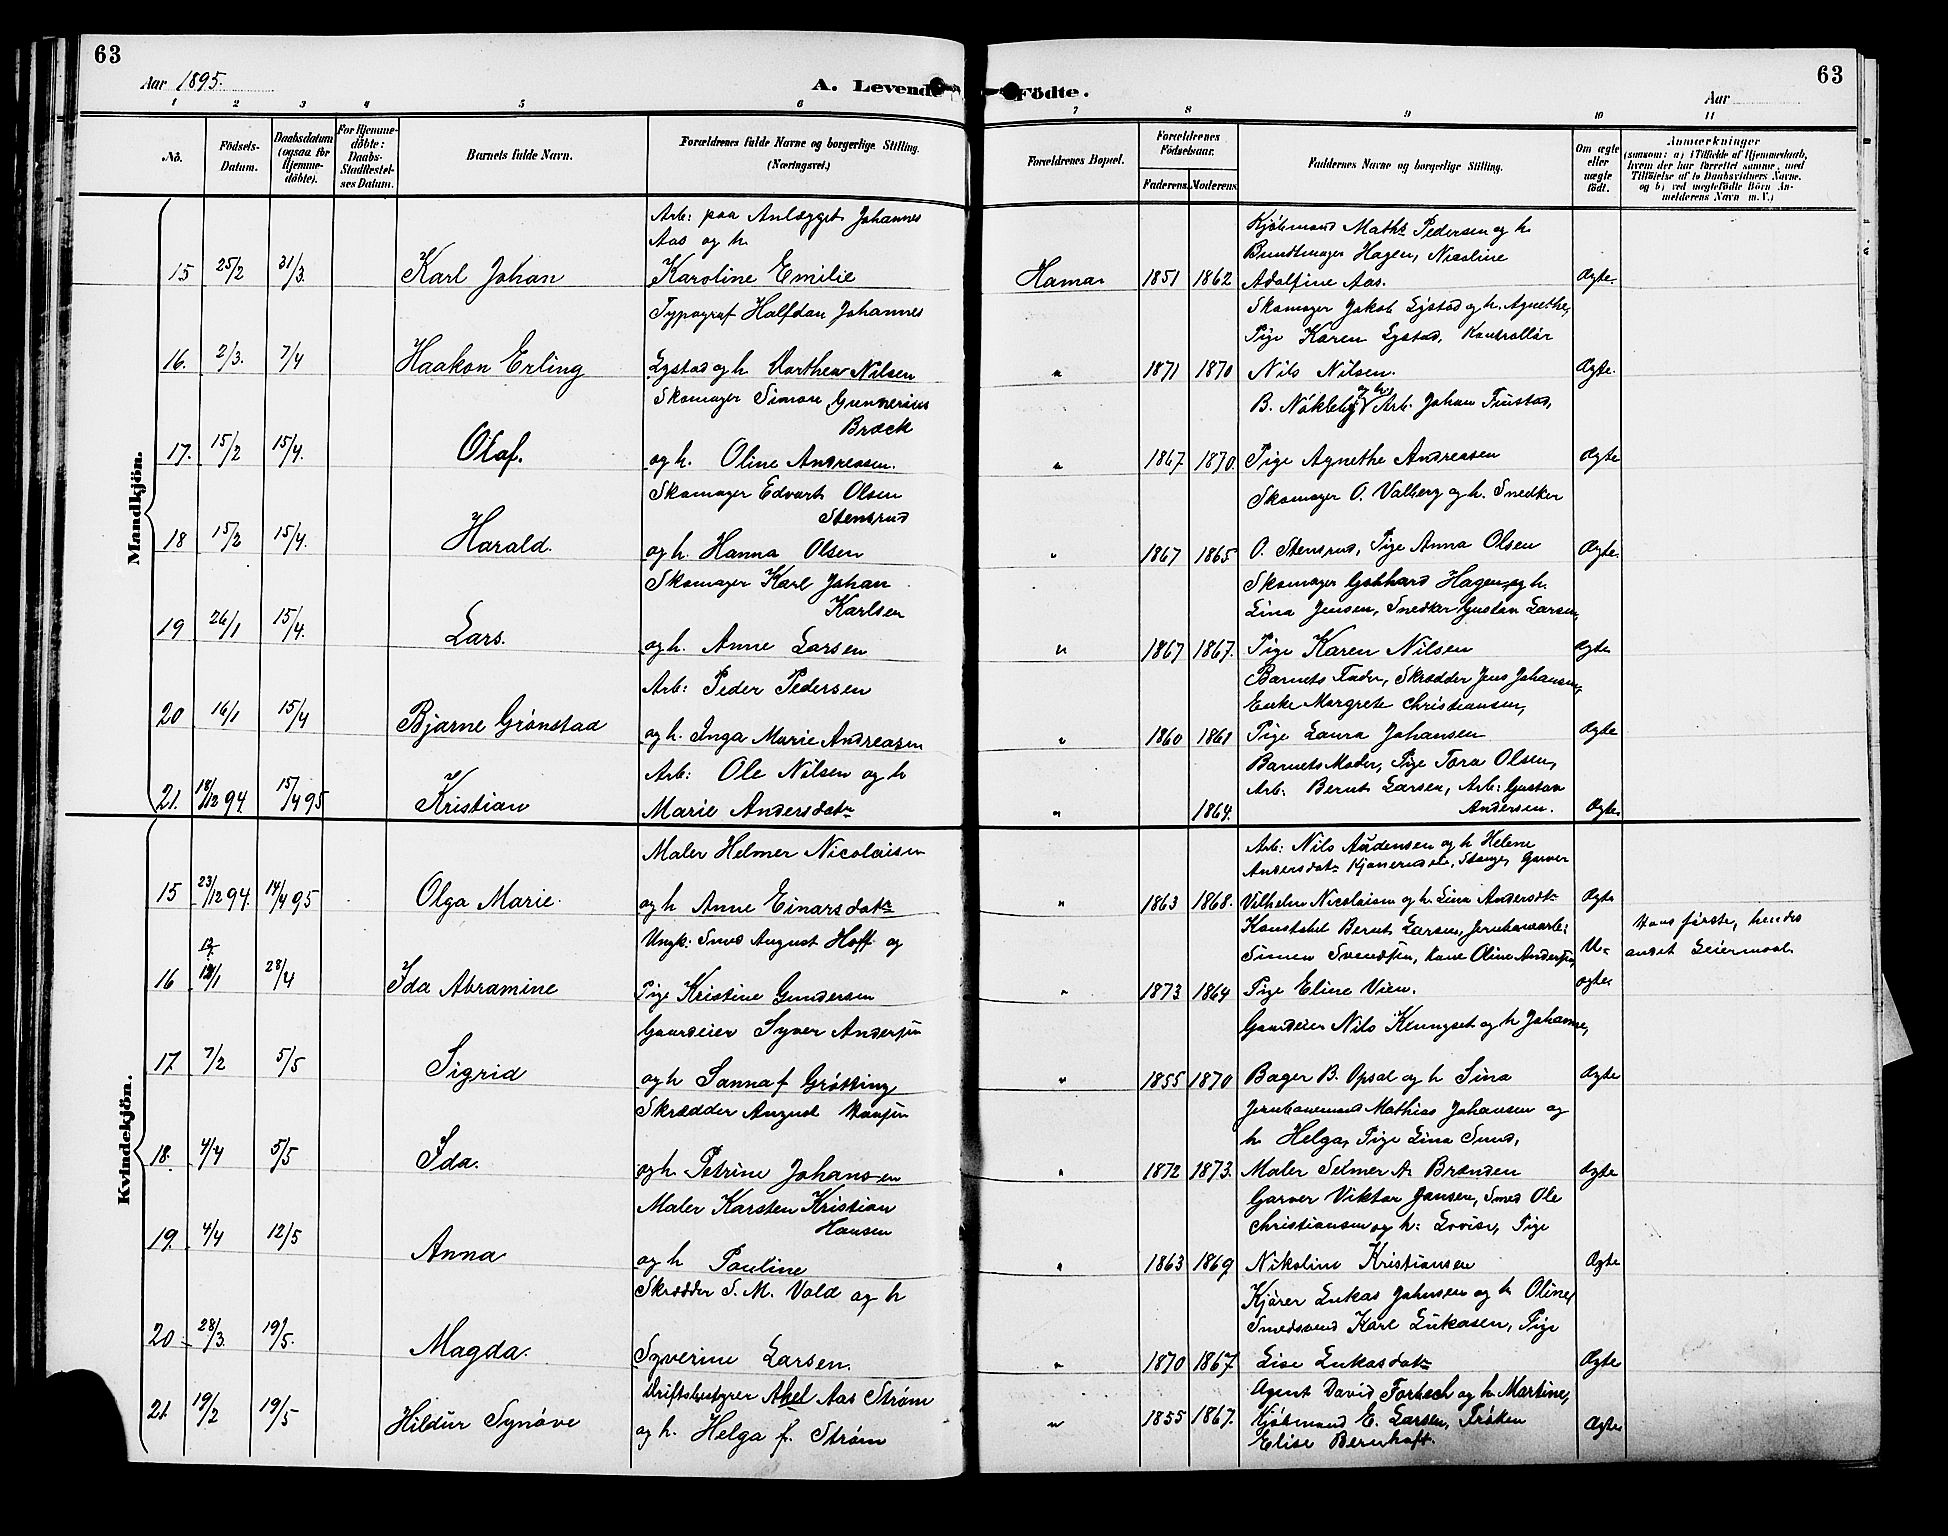 63
63
Aar 1895.
A. Levende Födte.
Aar
1 2 3 4 5 6 7 8 9 10 11
No.
Födsels-Datum.
Daabsdatum (ogsaa for Hjemme-döbte).
For Hjemme-döbte: Daabs-Stadfæstel-ses Datum.
Barnets fulde Navn.
Forældrenes fulde Navne og borgerlige Stilling. (Næringsvei.)
Forældrenes Bopæl.
Forældrenes Födselsaar.
Faderens. Moderens.
Faddernes Navne og borgerlige Stilling.
Om ægte eller uægte födt.
Anmærkninger
(saasom: a) i Tilfælde af Hjemmedaab,
hvem der har forrettet samme, med
Tilföielse af to Daabsvidners Navne.
og b) ved uægtefödte Börn An-
melderens Navn m. V.)
Mandkjön.
Arb: paa Anlægget Johannes
Aas og h.
Kjøbmand Maths Pedersen og h.
Bundtmager Hagen, Nicoline
15 25/2 31/3. Karl Johan Karoline Emilie Hamar 1851 1862 Adolfine Aas. Ægte.
Typograf Halfdan Johannes
Skomager Jakob Lystad og h. Agnethe,
Pige Karen Lystad, Kontrollør
16. 2/3. 7/4 Haakon Erling Lystad og h. Dorthea Nilsen " 1871 1870 Nils Nilsen. Ægte.
Skomager Simon Gunnerius
Bræck
B. Nökleby og h., Arb. Johan Finstad,
17. 15/2 15/4. Olaf. og h. Oline Andreasen. " 1867. 1870. Pige Agnethe Andreasen Ægte
Skomager Edvart Olsen
Stensrud
Skomager O. Valberg og h. Snedker
18 15/2 15/4. Harald. og h. Hanna Olsen " 1867 1865 O. Stensrud, Pige Anna Olsen Ægte.
Skomager Karl Johan
Karlsen
Skomager Gebhard Hagen, og h.
Lina Jensen, Snedker Gustav Larsen,
19 26/1 15/4. Lars. og h. Anne Larsen " 1867 1867. Pige Karen Nilsen Ægte
Arb: Peder Pedersen
Barnets Fader, Skrædder Jens Johansen,
Enke Margrete Christiansen,
20 16/1 15/4 Bjarne Grönstad og h. Inga Marie Andreasen " 1860 1861 Pige Laura Johansen Ægte
Arb: Ole Nilsen og h
Barnets Moder, Pige Tora Olsen,
Arb: Bernt Larsen, Arb: Gustav
21. 18/12 94. 15/4 95 Kristian Marie Andersdatr " 1864. Andersen. Ægte
Kvindekjön.
Maler Helmer Nicolaisen
Arb: Nils Audensen og h Helene
Andersdatr, Stange, Garver
15 23/12 94. 14/4 95 Olga Marie. og h Anne Einarsdatr " 1863 1868. Vilhelm Nicolaisen og h. Lina Andersdtr Ægte
Ungk: Smed August Hoff og
Konstabel Bernt Larsen, Jernbanearb:
Simen Svendsen, kone Oline Andersen,
Hans første, hendes
andet Leiermaal.
16 12/1 28/4 Ida Abramine Pige Kristine Gundersen " 1873 1864 Pige Eline Vien. U-ægte
Gaardeier Syver Andersen
Gaardeier Nils Klungset og h Johanne,
17. 7/2 5/5 Sigrid og h Sanna f. Grötting " 1855 1870 Bager B. Opsal og h Sina Ægte
Skrædder August Hansen
Jernbanemand Mathias Johansen og
h Helga, Pige Lina Smed,
18. 4/4 5/5 Ida. og h Petrine Johansen " 1872 1873. Maler Selmer A. Brænden Ægte
Maler Karsten Kristian
Hansen
Garver Viktor Jansen, Smed Ole
Christiansen og h: Lovise, Pige
19. 4/4 12/5 Anna og h Pauline " 1863 1869 Nikoline Kristiansen Ægte
Skrædder S. M. Vold og h
Kjører Lukas Johnsen og h Oline,
Smedsvend Karl Lukasen, Pige
20 28/3 19/5. Magda. Syverine Larsen. " 1870 1867. Lise Lukasdatr Ægte
Driftsbestyrer Axel Aas Strøm
Agent David Forbech og h Martine,
21. 19/2 19/5 Hildur Synöve og h. Helga f. Strøm " 1855 1867. Kjøbmand E. Larsen, Frøken Ægte
Elise Bernhoft.